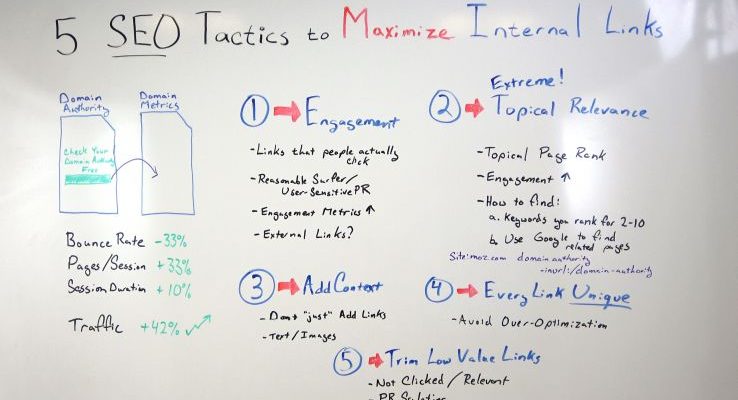 5 SEO Tactics to Maximize Internal Links
Domain
Authority
Domain
Metrics
Check Your
Domain Authority
Free
Bounce Rate -33%
Pages/Session +33%
Session Duration +10%
Traffic +42%
① Engagement
- Links that people actually
click
- Reasonable Surfer/
User-Sensitive PR
- Engagement Metrics ↑
- External Links?
Extreme!
② Topical Relevance
- Topical Page Rank
- Engagement ↑
- How to find:
a. Keywords you rank for 2-10
b. Use Google to find
related pages
Site:moz.com domain authority
-inurl:/domain-authority
③ Add Context
- Don't "just" Add Links
- Text/Images
④ Every Link Unique
- Avoid Over-Optimization
⑤ Trim Low Value Links
- Not Clicked / Relevant
- PR